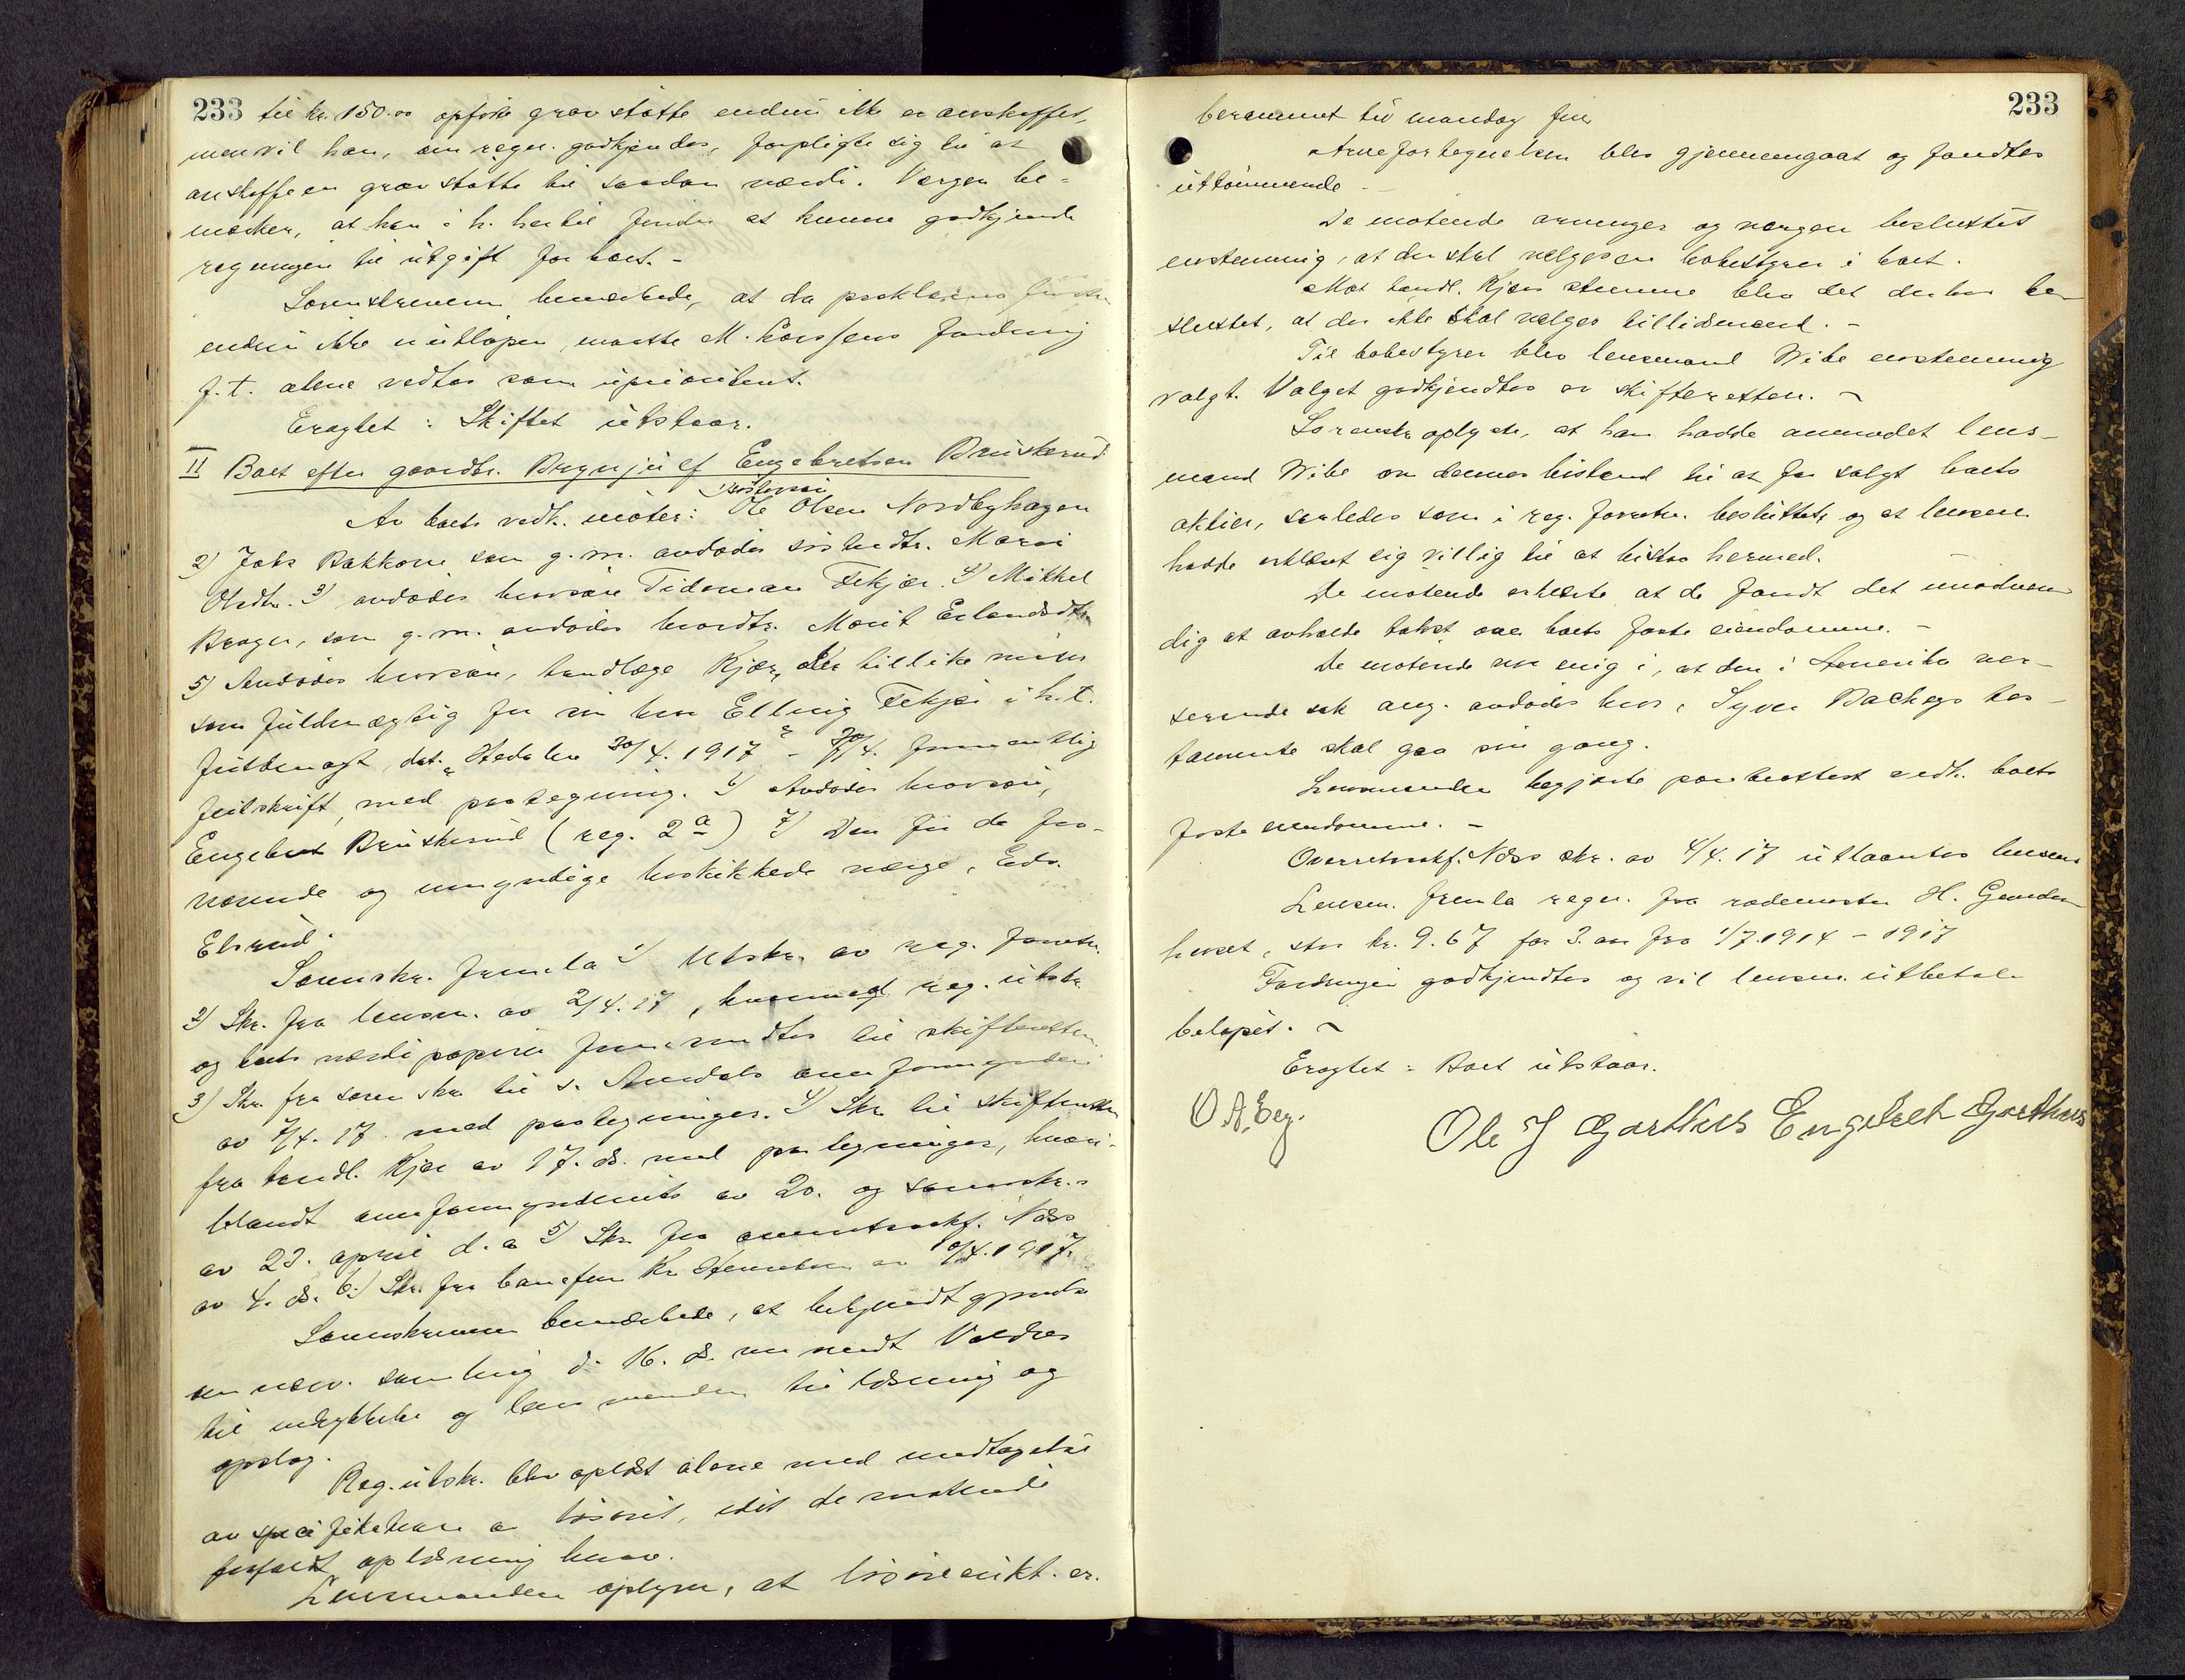 233 til kr. 150.00 opførte gravstøtte endnu ikke er anskaffet,
men vil han, om regn. godkjendes, forpligte sig til at
anskaffe en gravstøtte til saadan værdi. Vergen be-
merker, at han i h. hertil finder at kunne godkjende
regningen til utgift for boet. -
Sorenskriveren bemerkede, at da proklama
endnu ikke er utløpen, maatte M. fordring
f. t. alene vedtas som uprioritert.
Eragtet: Skiftet utstaar.
II Boet efter gaardbr. Brynjulf Engebretsen Bruskerud
Av boets vedk. møter: 1) søstersøn Ole Olsen Nordbyhagen
2) Jakob Bakkene som g. m. avdødes søsterdtr. Marie
Olsdtr. 3) avdødes brorsøn Tideman Fekjær. 4) Mikkel
som g. m. avdødes brordtr. Marit Erlandsdtr.
5) Avdødes brorsøn, tandlæge Kjær, der tillike møter
som fuldmægtig for sin bror Elling Fekjær i h. t.
fuldmagt, dat. 30/4. 1917
feilskrift, med paategning. 6) Avdødes brorsøn,
Engebret Bruskerud (reg. 2a) 7) Den for de fra-
værende og umyndige beskikkede verge, Edv.
Elsrud.
Sorenskr. fremla 1) Utskr. av reg. forretn.
2) Skr. fra lensm. av 2/4. 17, hvormed reg. utskr.
og boets værdipapirer fremsendtes til skifteretten
3) Skr. fra sorenskr. til s. Aurdals overformynderi
av 7/4. 17. med paategninger. 4) Skr. til skifteretten
fra tandl. Kjær av 17. ds. med paategninger, hvori-
blandt overformynderiets av 20. og sorenskr.s
av 23. april d. a. 5) Skr. fra overretssakf. Næss
av 4. ds. 6) Skr. fra Kr. av 10/4. 1917.
Sorenskriveren bemerkede, at bekjendtgjørelse
om nærv. samling d. 16. ds. var sendt Valdres
til indrykkelse og lensmanden til læsning og
opslag.
Reg. utskr. blev oplæst alene med undtagelse
av specifikationen av løsøret, idet de møtende
frafaldt oplæsning herav.
Lensmanden oplyser, at løsøreaukt. er
233
berammet til mandag
Arvefortegnelsen blev gjennemgaat og fandtes
uttømmende. -
De møtende arvinger og vergen besluttet
enstemmig, at der skal vælges en bobestyrer i boet.
Mot tandl. Kjærs stemme blev det derhos be-
sluttet, at der ikke skal vælges tillidsmænd. -
Til bobestyrer blev lensmand Wibe enstemmig
valgt. Valget godkjendtes av skifteretten. -
Sorenskr. oplyste, at han hadde anmodet lens-
mand Wibe om dennes bistand til at faa solgt boets
aktier, saaledes som i reg. forretn. besluttet, og at lensm.
hadde erklært sig villig til at bistaa hermed. -
De møtende erklærte at de fandt det unødven-
dig at avholde takst over boets faste eiendomme. -
De møtende var enig i, at den i Amerika ver-
serende sak ang. avdødes bror, Syver tes-
tamente skal gaa sin gang.
Lensmanden begjærte panteattest vedk. boets
faste eiendomme. -
Overretssakf. Næss skr. av 4/4. 17 utlaantes lensm.
Lensm. fremla regn. fra rodemester H.
huset, stor kr. 9.67 for 3. aar fra 1/7. 1914 - 1917
Fordringen godkjendtes og vil lensm. utbetale
beløpet. -
Eragtet: Boet utstaar.
O. A. Eeg. Ole J Garthus Engebret Garthus